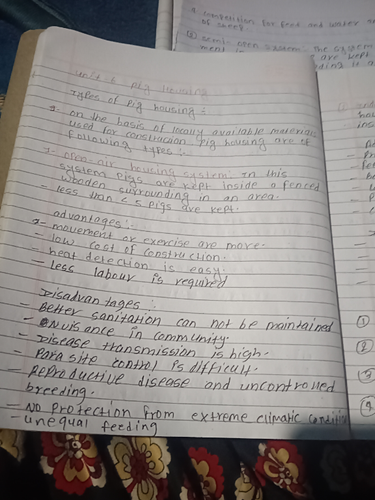 a competition for feed and water
of sheep.
semi open system: The system
are kept
Unit-6 Pig Housing
Types of Pig housing :-
→ on the basis of locally available materials
used for construction pig housing are of
following types :-
1- open-air housing system: In this
system pigs are kept inside a fenced
wooden surrounding in an area.
- less than < 5 pigs are kept.
advantages :-
→ movement or exercise are more.
- low cost of construction.
- heat detection is easy.
- less labour is required
Disadvantages :-
- Better sanitation can not be maintained
- Nuisance in community.
- Disease transmission is high.
- Parasite control is difficult.
- Reproductive disease and uncontrolled
breeding.
- NO Protection from extreme climatic
- unequal feeding
①
②
③
④